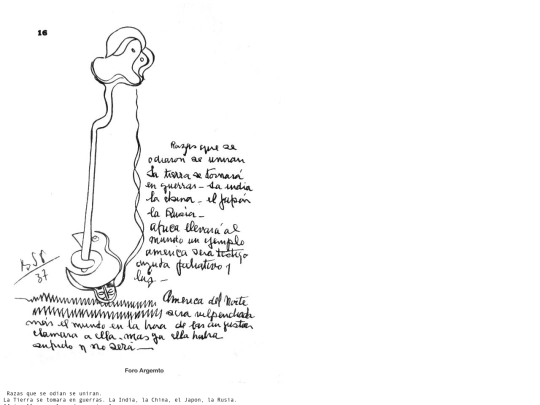 16
Razas que se
odiaron se uniran
La tierra se tornará
en guerras - La india
la china - el Japón
la Rusia -
africa llevará al
mundo un ejemplo
america será testigo
ayuda paliativo y
luz -
BSP
37
America del Norte
sera
más el mundo en la hora de las angustias
clamara a ella, mas ya ella habra
sufrido y no será -
Foro Argemto
Razas que se odian se uniran.
La Tierra se tomara en guerras. La India, la China, el Japon, la Rusia.